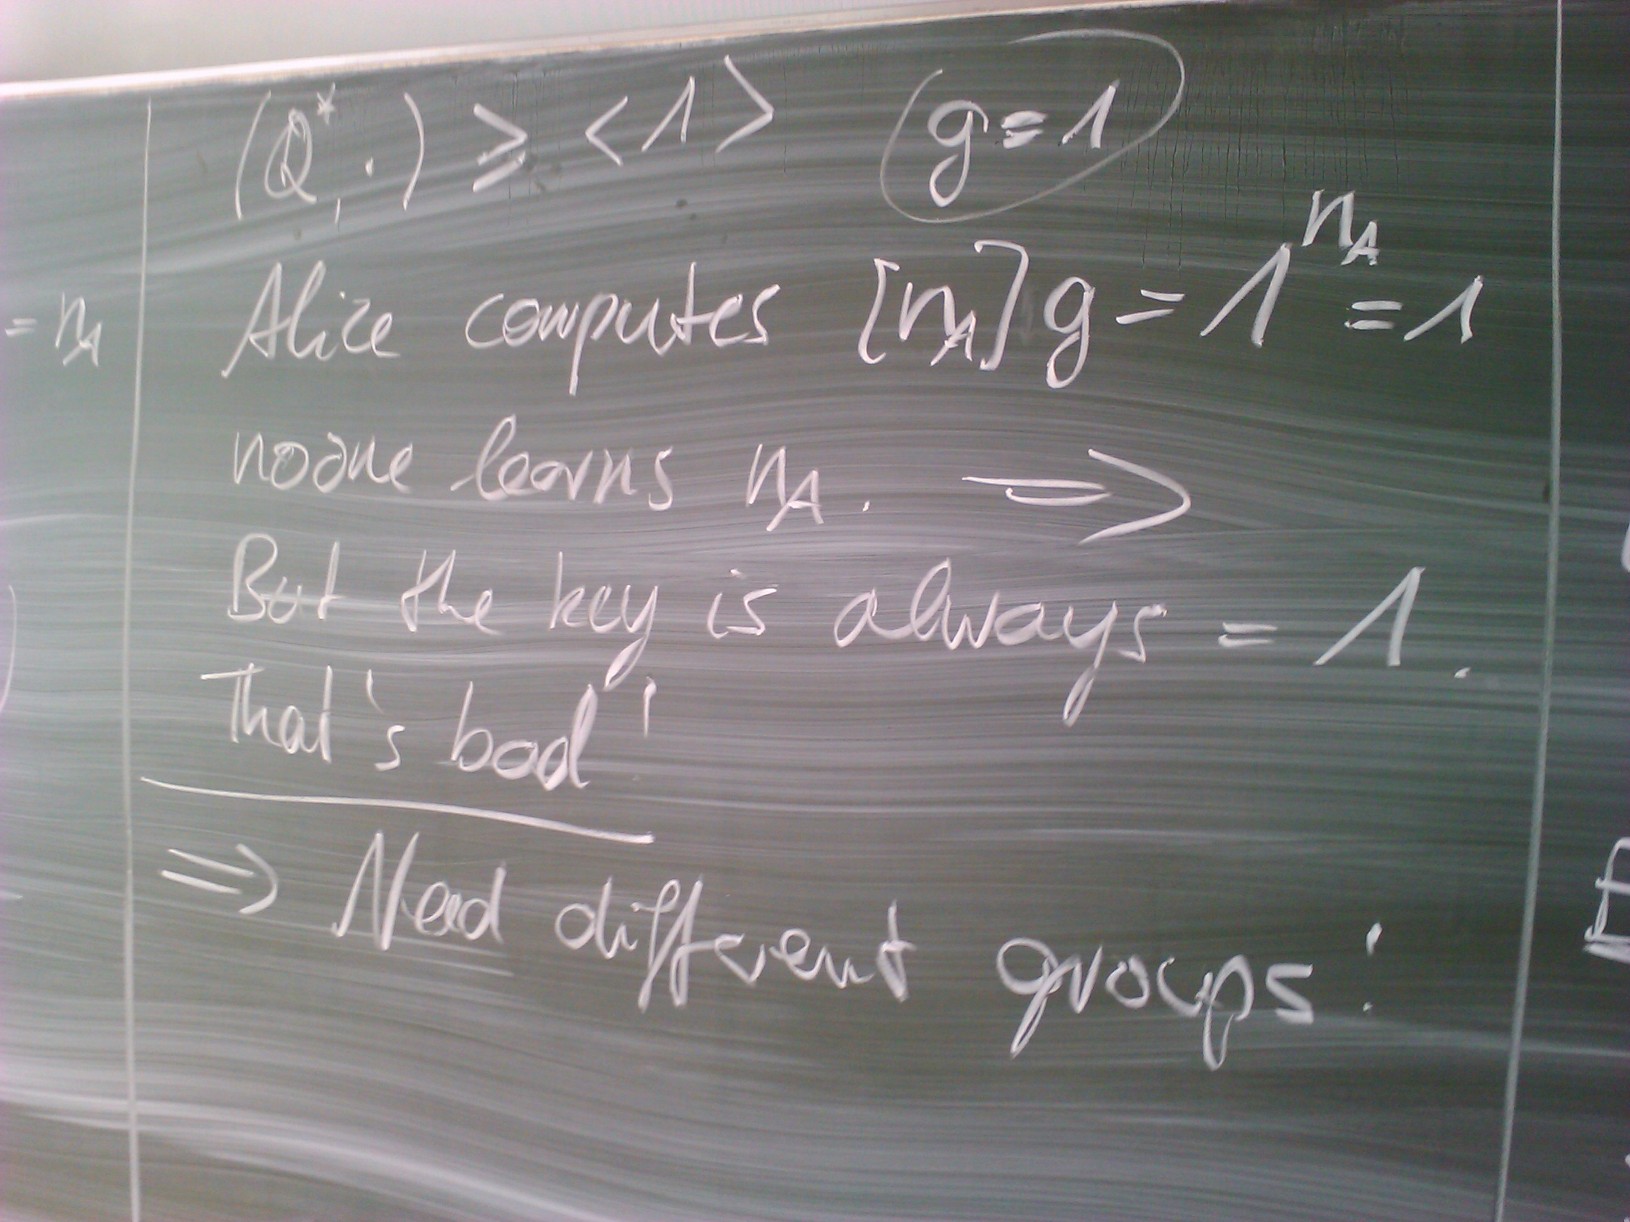 = n_A
(Q*, ·) ≥ <1> g=1
Alice computes [n_A]g = 1^{n_A} = 1
noone learns n_A. =>
But the key is always = 1.
That's bad!
=> Need different groups!